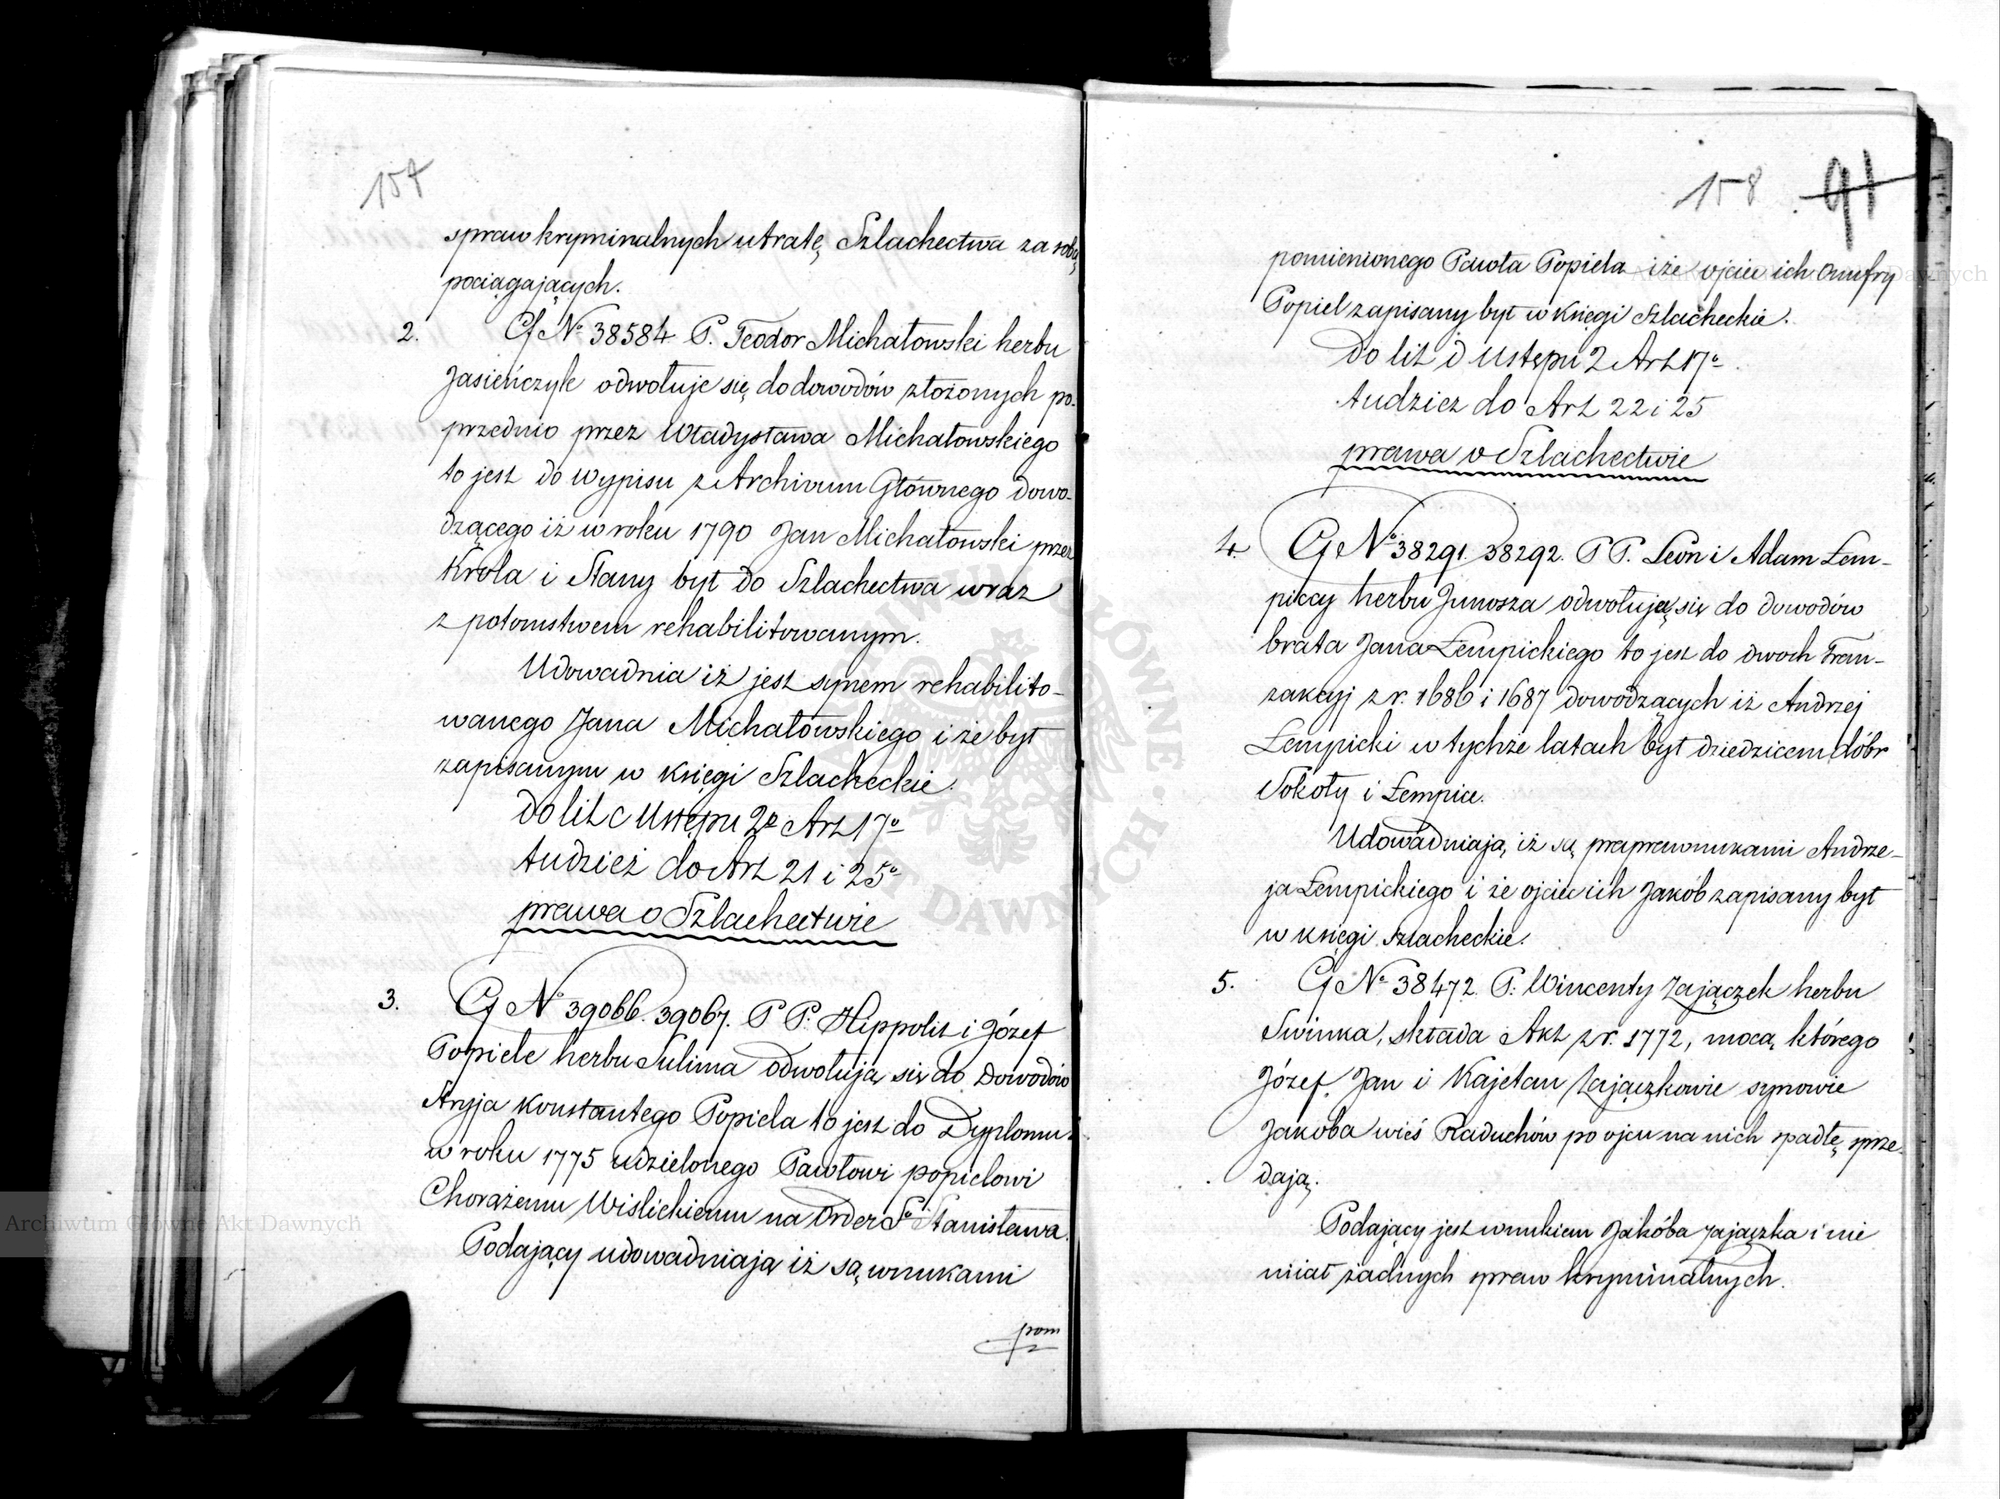 157
spraw kryminalnych utratę Szlachectwa za sobą
pociągających.
2. Cf No 38584 P. Teodor Michałowski herbu
Jasieńczyk odwołuje się do dowodów złożonych po-
przednio przez Władysława Michałowskiego
to jest do wypisu z Archivum Głównego dowo-
dzącego iż w roku 1790 Jan Michałowski przez
Króla i Stany był do Szlachectwa wraz
z potomstwem rehabilitowanym.
Udowadnia iż jest synem rehabilito-
wanego Jana Michałowskiego i że był
zapisanym w księgi Szlacheckie.
do lit c Ustępu 2o Art 17o
tudzież do Art 21 i 25o
prawa o Szlachectwie
3. Cf No 39066. 39067. P P. Hippolit i Józef
Popiele herbu Sulima odwołują się do Dowodów
Stryja Konstantego Popiela to jest do Dyplomu
w roku 1775 udzielonego Pawłowi popielowi
Chorążemu Wislickiemu na Order So Stanisława.
Podający udowadniają iż są wnukami
pom
158 91
pomienionego Pawła Popiela iże ojciec ich Onufry
Popiel zapisany był w Księgi Szlacheckie.
do lit d Ustępu 2 Art 17o
tudzież do Art 22 i 25
prawa o Szlachectwie
4. Cf No 38291. 38292. P P. Leon i Adam Łem-
piccy herbu Junosza odwołują się do dowodów
brata Jana Łempickiego to jest do dwoch Tran-
zakcyj z r. 1686 i 1687 dowodzących iż Andrzej
Łempicki w tychże latach był dziedzicem dóbr
Sokoły i Łempice.
Udowadniają, iż są praprawnukami Andrze-
ja Łempickiego i że ojciec ich Jakób zapisany był
w księgi szlacheckie.
5. Cf No 38472. P. Wincenty Zajączek herbu
Swinka, składa Akt z r. 1772, mocą którego
Józef, Jan i Kajetan Zajączkowie synowie
Jakóba wieś Raduchów po ojcu na nich spadłę sprze-
dają.
Podający jest wnukiem Jakóba Zajączka i nie
miał żadnych spraw kryminalnych.
Archiwum Główne Akt Dawnych
ARCHIWUM GŁÓWNE AKT DAWNYCH